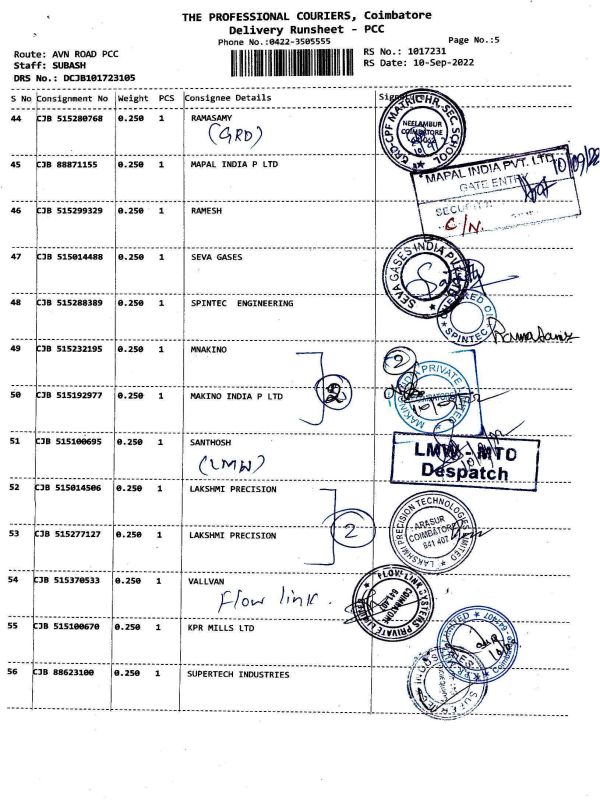 THE PROFESSIONAL COURIERS, Coimbatore
Delivery Runsheet - PCC
Phone No.:0422-3505555
Page No.:5
Route: AVN ROAD PCC
Staff: SUBASH
DRS No.: DCJB101723105
RS No.: 1017231
RS Date: 10-Sep-2022
S No Consignment No Weight PCS Consignee Details
44 CJB 515280768 0.250 1 RAMASAMY
(GRD)
GRD CPF MATRIC HR SEC SCHOOL
NEELAMBUR
COIMBATORE
45 CJB 88871155 0.250 1 MAPAL INDIA P LTD
MAPAL INDIA PVT. LTD
10/09/22
GATE ENTRY
46 CJB 515299329 0.250 1 RAMESH
C/N.
47 CJB 515014488 0.250 1 SEVA GASES
SEVA GASES INDIA
48 CJB 515288389 0.250 1 SPINTEC ENGINEERING
SPINTEC
49 CJB 515232195 0.250 1 MNAKINO
2
50 CJB 515192977 0.250 1 MAKINO INDIA P LTD
2
MAKINO INDIA PRIVATE LIMITED
51 CJB 515100695 0.250 1 SANTHOSH
(LMW)
LMW - MTO
Despatch
52 CJB 515014506 0.250 1 LAKSHMI PRECISION
LAKSHMI PRECISION TECHNOLOGIES LIMITED
ARASUR
COIMBATORE
641 407
53 CJB 515277127 0.250 1 LAKSHMI PRECISION
2
54 CJB 515370533 0.250 1 VALLVAN
Flow link.
FLOW LINK SYSTEMS PRIVATE LIMITED
COIMBATORE
55 CJB 515100670 0.250 1 KPR MILLS LTD
56 CJB 88623100 0.250 1 SUPERTECH INDUSTRIES